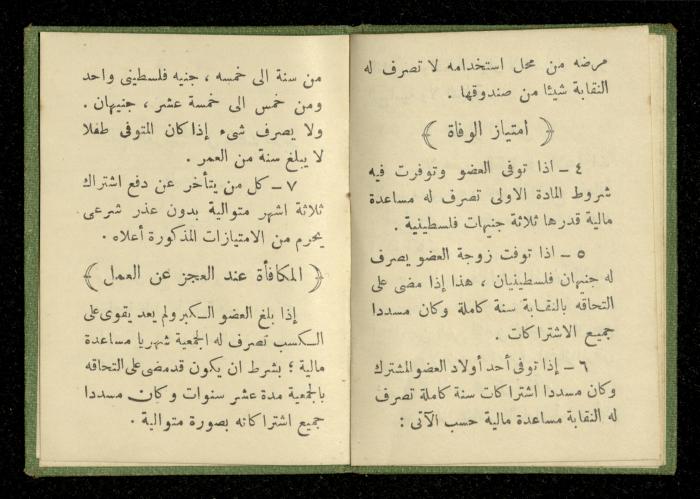 مرضه من محل استخدامه لا تصرف له
النقابة شيئا من صندوقها .
﴿ أمتياز الوفاة ﴾
٤ - اذا توفى العضو وتوفرت فيه
شروط المادة الاولى تصرف له مساعدة
مالية قدرها ثلاثة جنيهات فلسطينية .
٥ - اذا توفت زوجة العضو يصرف
له جنيهان فلسطينيان ، هذا إذا مضى على
التحاقه بالنقابة سنة كاملة وكان مسددا
جميع الاشتراكات .
٦ - إذا توفى أحد أولاد العضو المشترك
وكان مسددا اشتراكات سنة كاملة تصرف
له النقابة مساعدة مالية حسب الآتى :
من سنة الى خمسه ، جنيه فلسطينى واحد
ومن خمس الى خمسة عشر ، جنيهان .
ولا يصرف شىء إذا كان المتوفى طفلا
لا يبلغ سنة من العمر .
٧ - كل من يتأخر عن دفع اشتراك
ثلاثة اشهر متوالية بدون عذر شرعى
يحرم من الامتيازات المذكورة أعلاه .
﴿ المكافأة عند العجز عن العمل ﴾
إذا بلغ العضو الكبر ولم يعد يقوى على
الكسب تصرف له الجمعية شهريا مساعدة
مالية ؛ بشرط ان يكون قد مضى على التحاقه
بالجمعية مدة عشر سنوات وكان مسددا
جميع اشتراكاته بصورة متوالية .